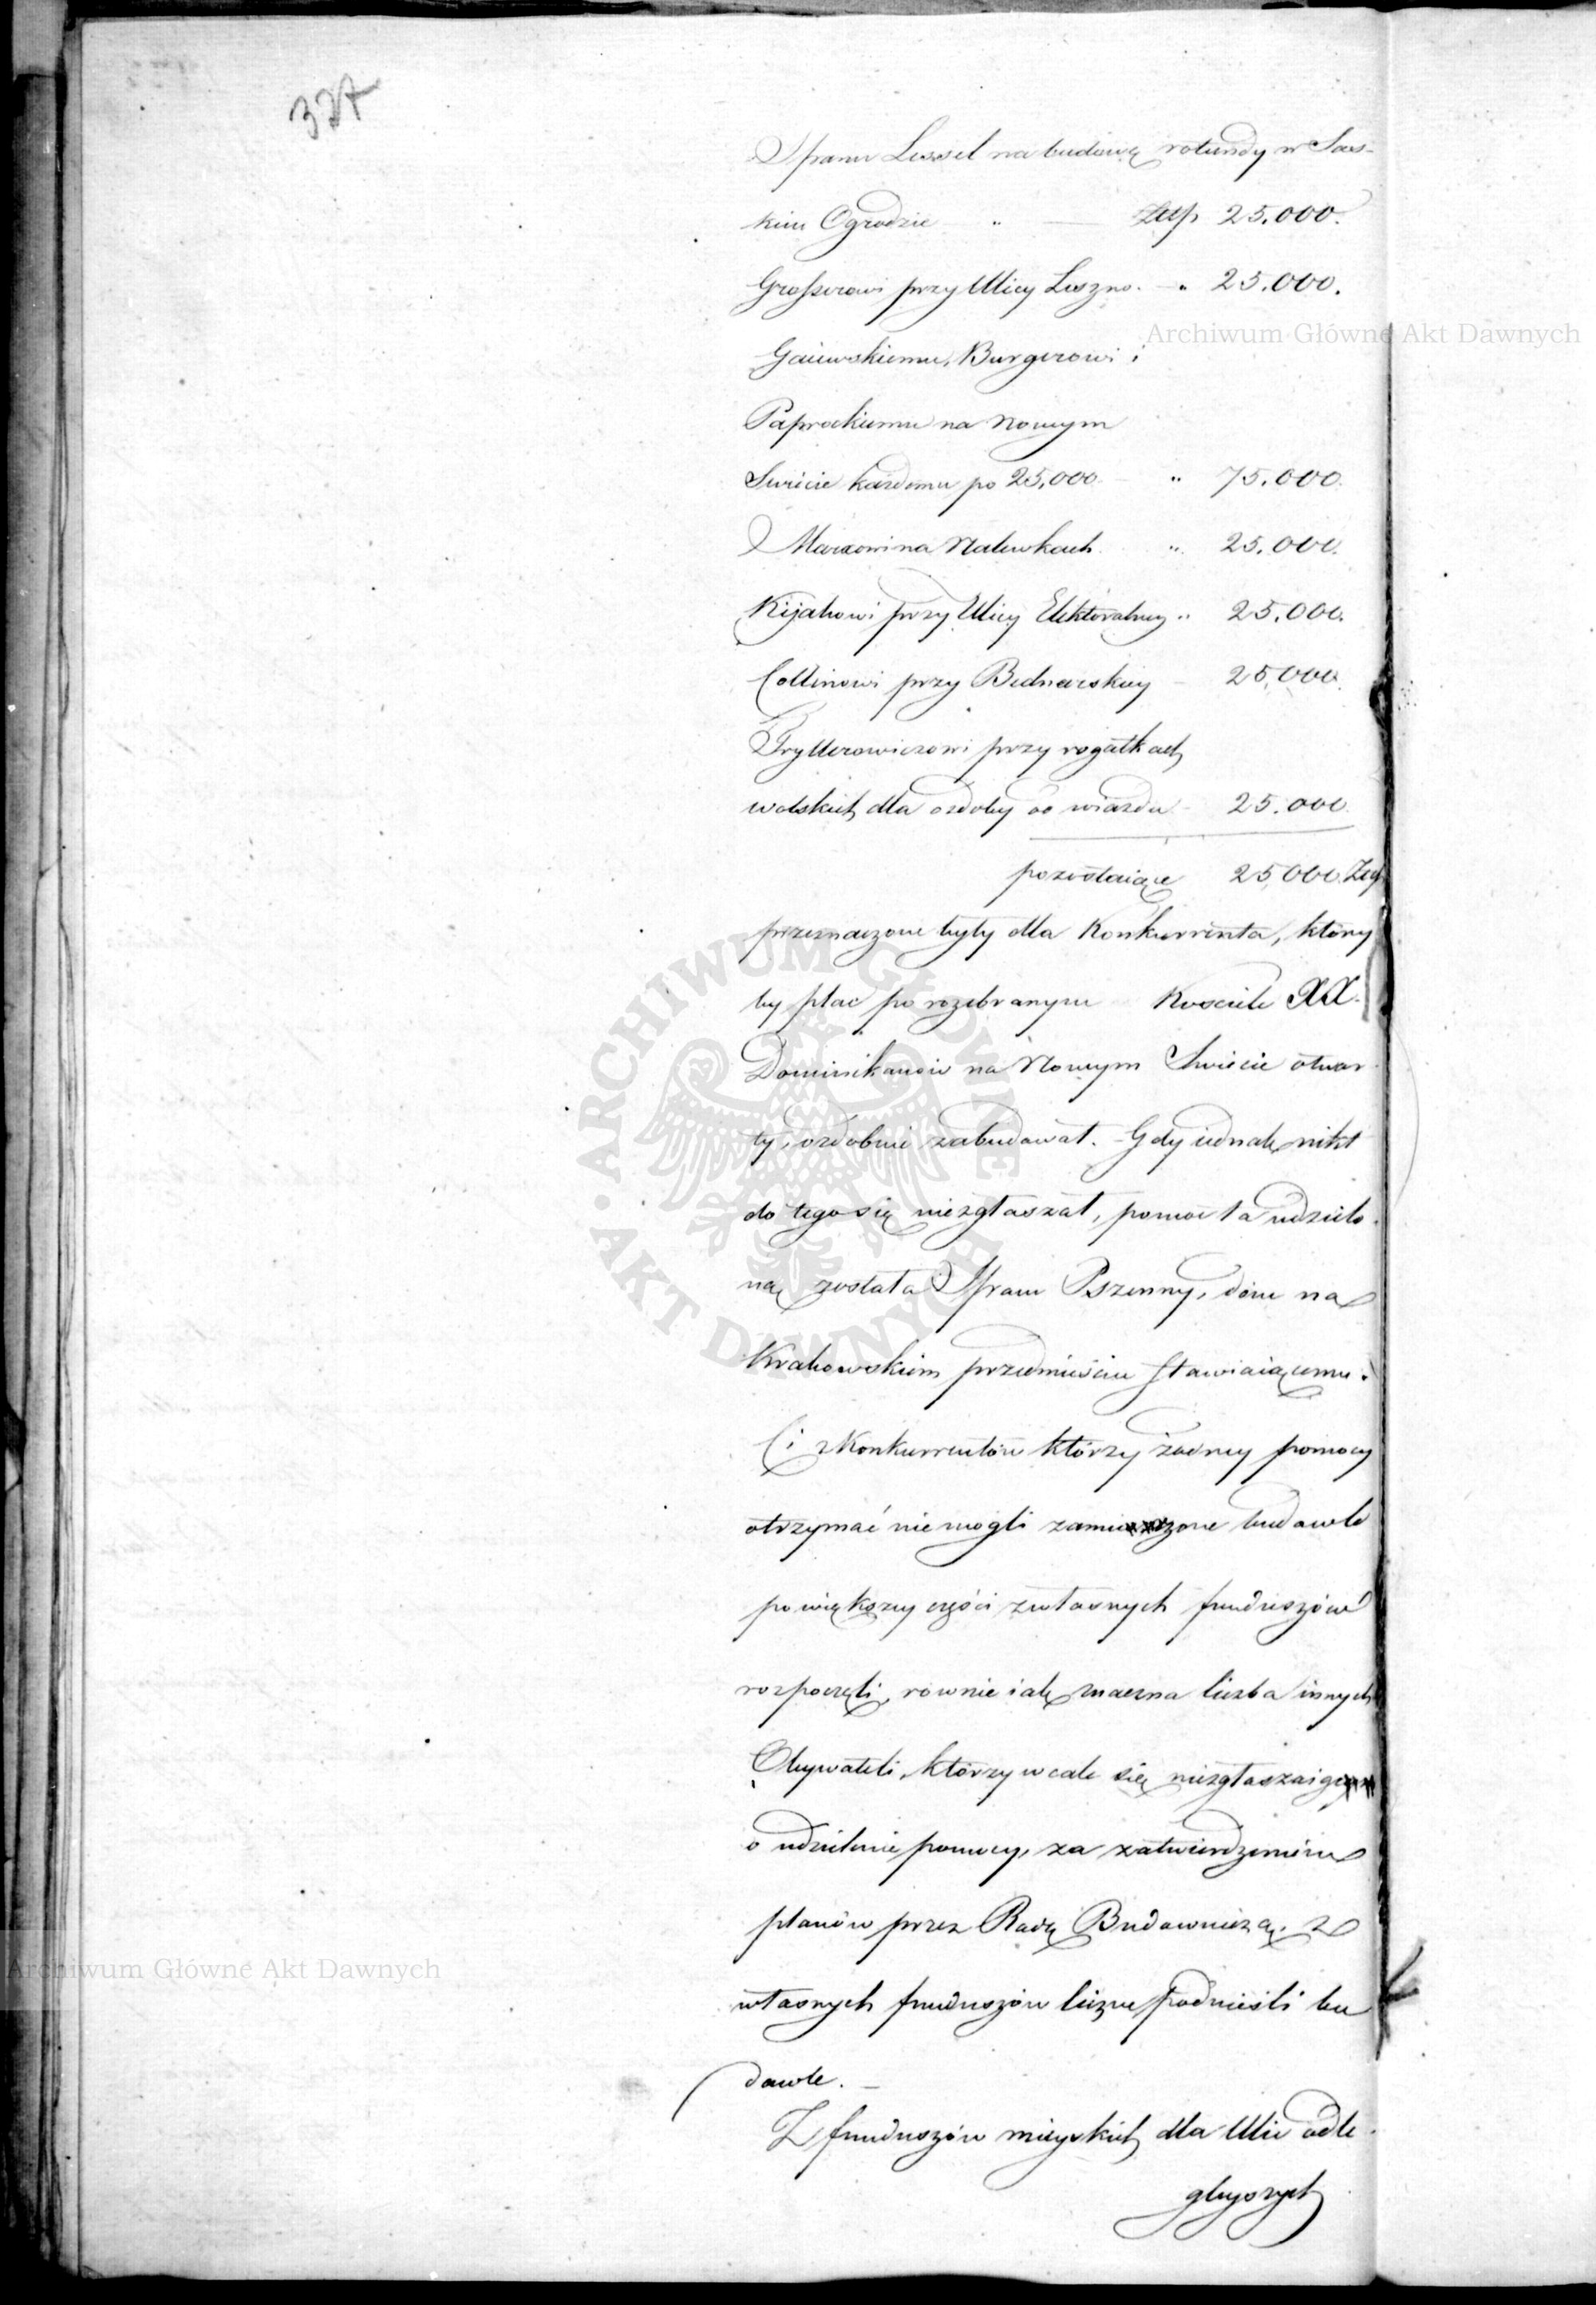 327
JPanu Lessel na budowę rotundy w Sas-
kim Ogrodzie " — Złtp 25.000.
Grosserowi przy Ulicy Leszno. — " 25.000.
Archiwum Główne Akt Dawnych
Gaiewskiemu, Burgerowi i
Paprockiemu na Nowym
Swiecie każdemu po 25,000. — " 75.000.
Marxowi na Nalewkach. " 25.000.
Kijakowi przy Ulicy Elektoralney " 25.000.
Collinowi przy Bednarskiey — 25,000.
Tryllerowiczowi przy rogatkach
wolskich dla ozdoby do wiazdu — 25.000.
pozostaiące 25,000. Złtp
przeznaczone były dla Konkurrenta, który
by plac po rozebranym Kosciele XX.
Dominikanów na Nowym Swiecie otwar
ty, ozdobnie zabudował. Gdy iednak nikt
do tego się niezgłaszał, pomoc ta udzielo
ną została JPanu Pszenny, dom na
Krakowskim przedmieściu stawiaiącemu.
Ci z Konkurrentów którzy żadney pomocy
otrzymać nie mogli zamierzone budowle
po większey części z własnych funduszów
rozpoczęli, równie iak znaczna liczba innych
Obywateli, którzy wcale się niezgłaszaiąc
o udzielenie pomocy, za zatwierdzeniem
planów przez Radę Budowniczą, z
Archiwum Główne Akt Dawnych
własnych funduszów liczne podnieśli bu
dowle. —
Z funduszów mieyskich dla Ulic odle
gleyszych
ARCHIWUM GŁÓWNE AKT DAWNYCH